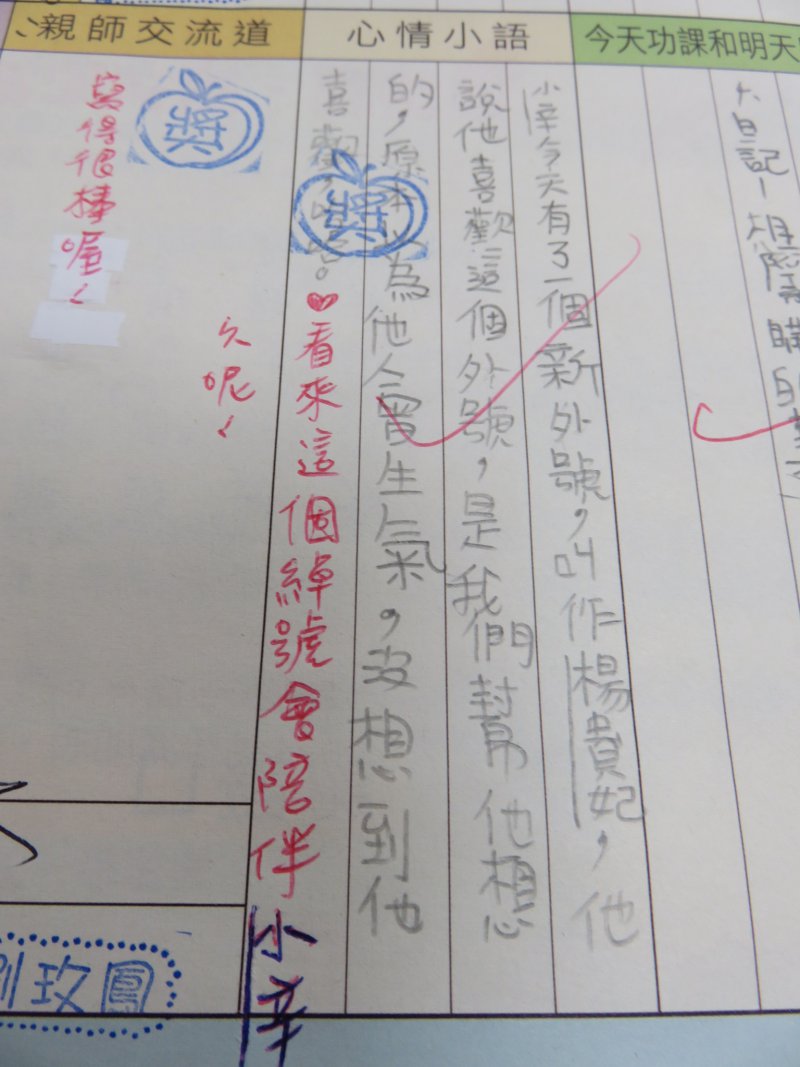 親師交流道
心情小語
今天功課和明天
小辛今天有了一個新外號,叫作楊貴妃,他
說他喜歡這個外號,是我們幫他想
的,原本以為他會生氣,沒想到他
喜歡
♥看來這個綽號會陪伴小辛
久呢!
寫得很棒喔!
獎
獎
玫鳳